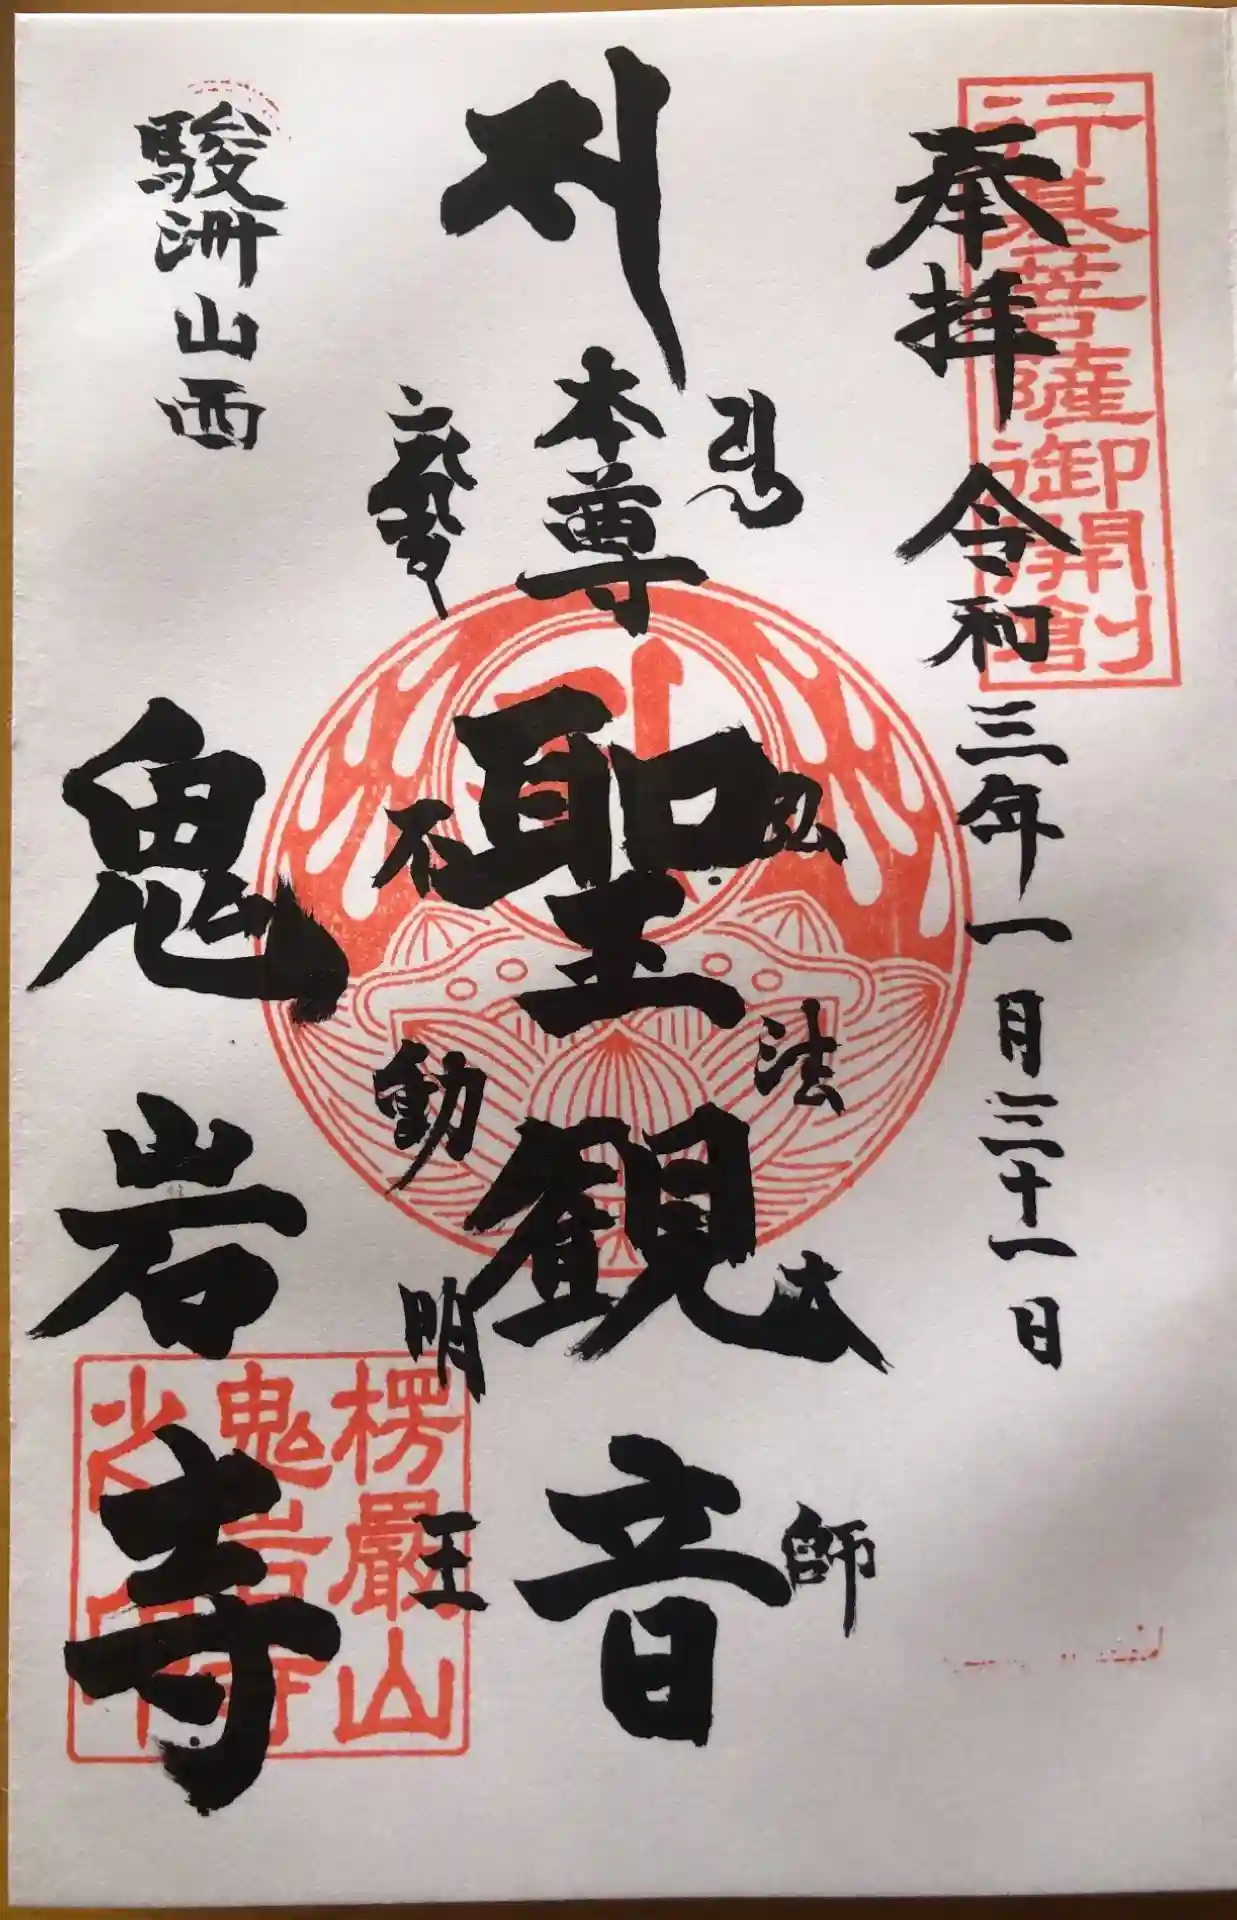 行基菩薩御開創
奉拝 令和三年一月三十一日
弘法大師
本尊 聖観音
不動明王
駿洲山西
鬼岩寺
楞厳山
鬼岩寺